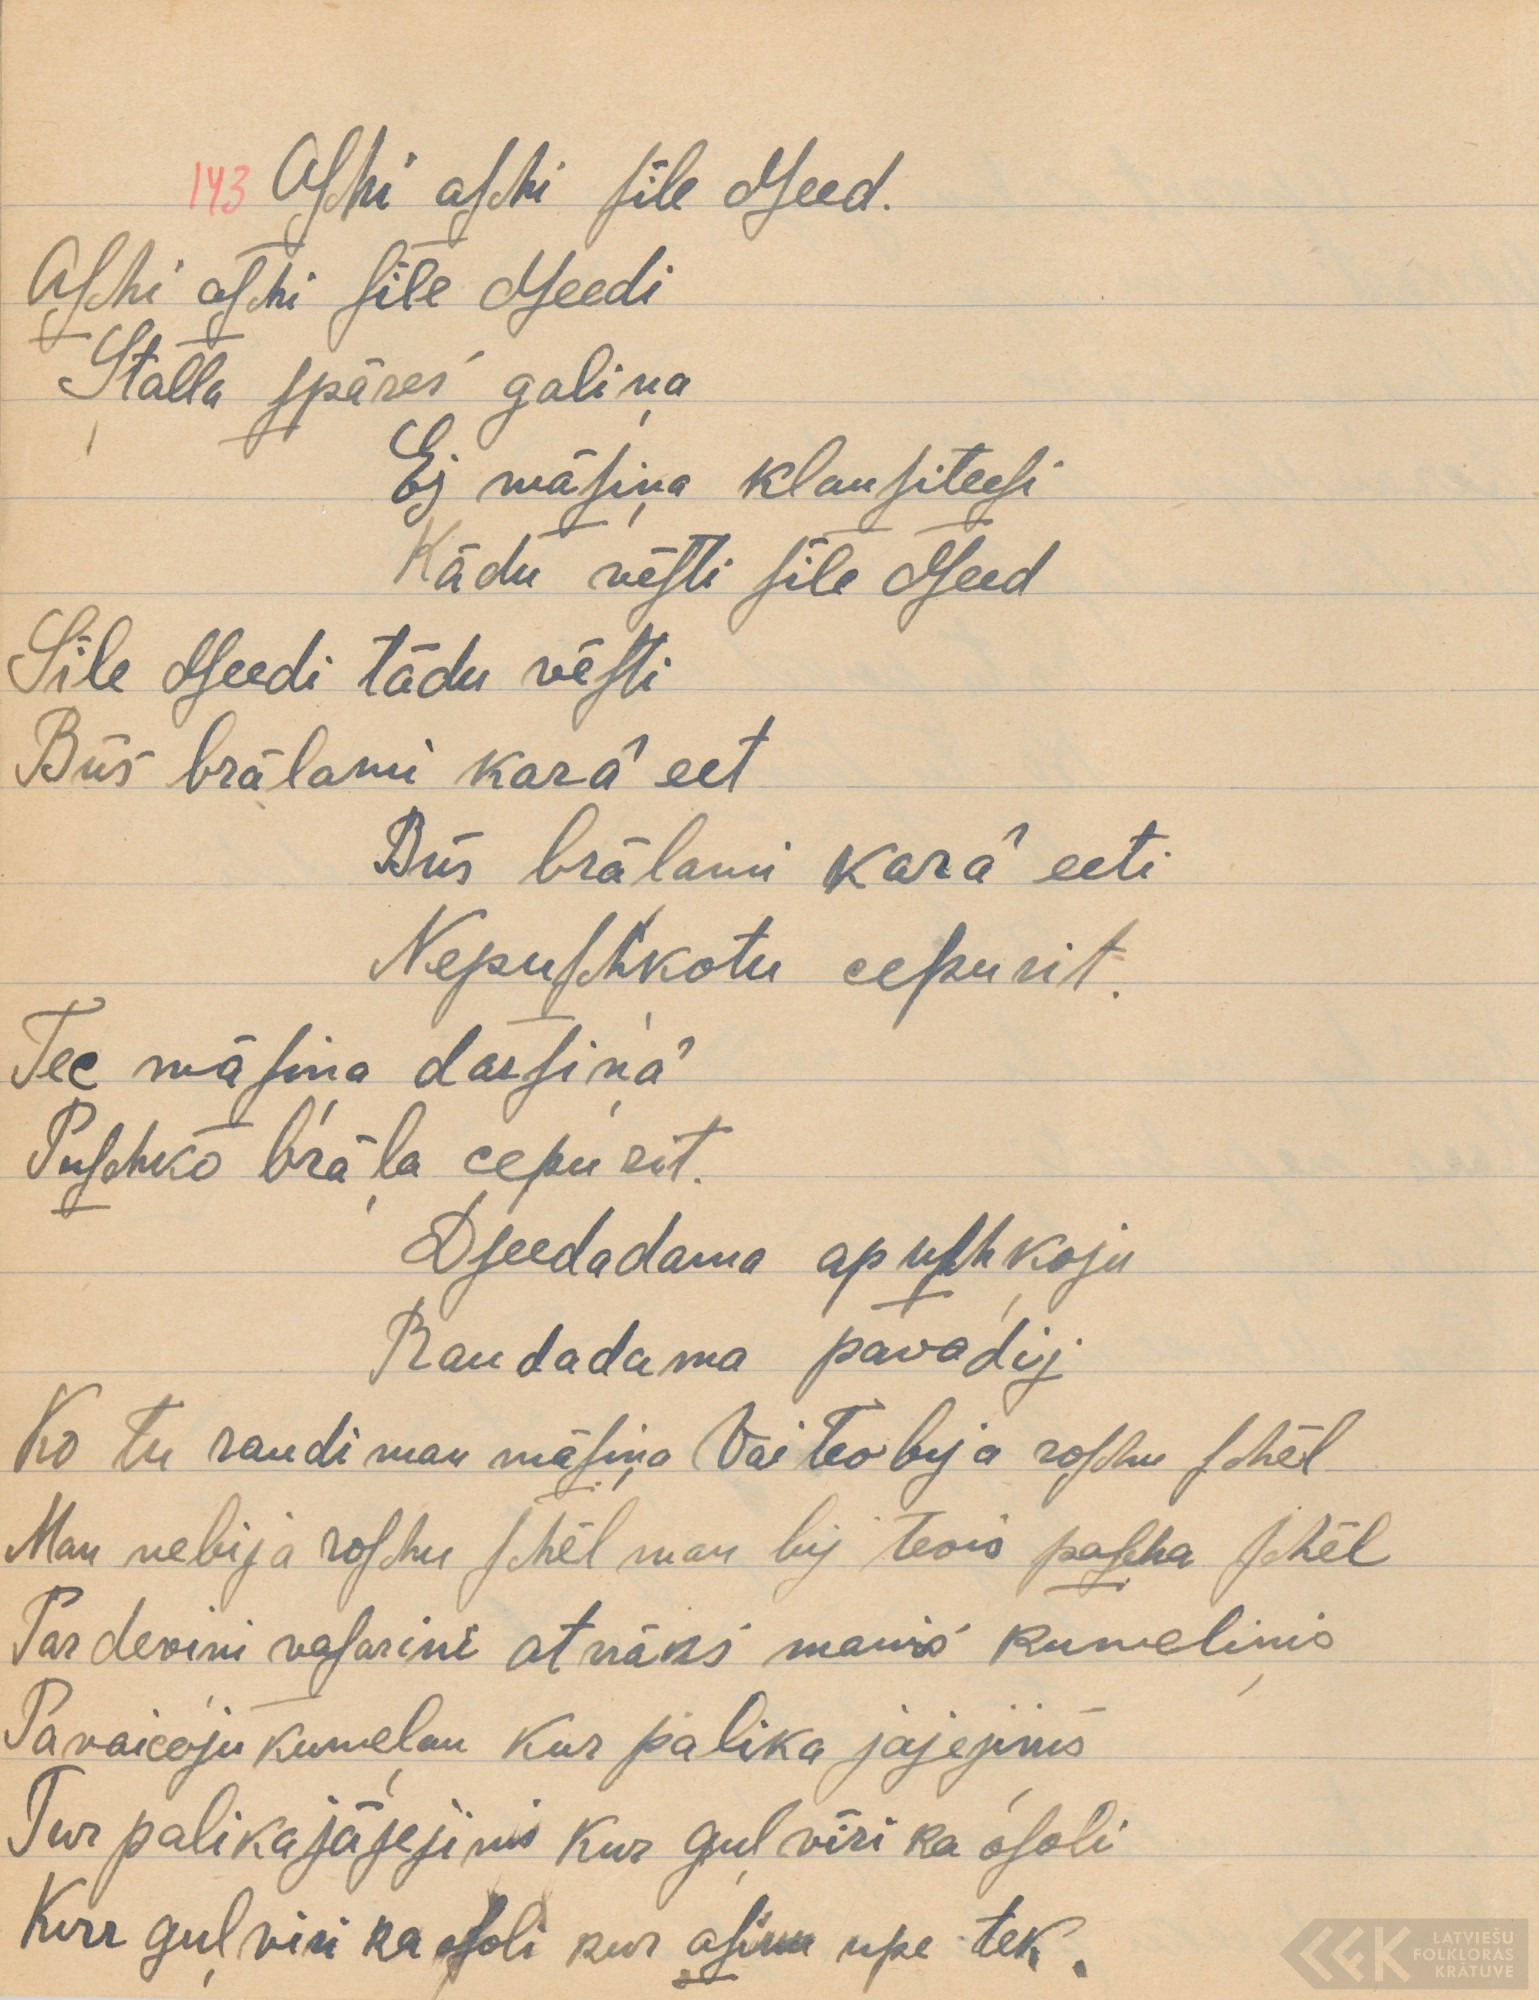 143 Aſchi aſchi ſīle dſeed.
Aſchi aſchi ſīle dſeedi
Staļļa ſpāres galiņa
Ej māſiņa klauſiteeſi
Kādu vēſti ſīle dſeed
Sīle dſeedi tādu vēſti
Būs brālami karâ eet
Būs brālami karâ eeti
Nepuſchkotu cepurit.
Tec māſiņa darſiņâ
Puſchko brāļa cepurit.
Dſeedadama apuſchkoju
Raudadama pavadij
Ko tu raudi man māſiņa Vai Tev bija roſchu ſchēl
Man nebija roſchu ſchēl man bij tevis paſcha ſchēl
Par devini vaſarini atnāks manis kumeliņis
Pavaicoju kumeļau kur palika jajejinis
Tur palika jājejinis kur guļ vīri ka oſoli
Kurr guļ viri ka oſoli kur aſinu upe tek.
LATVIEŠU
FOLKLORAS
KRĀTUVE